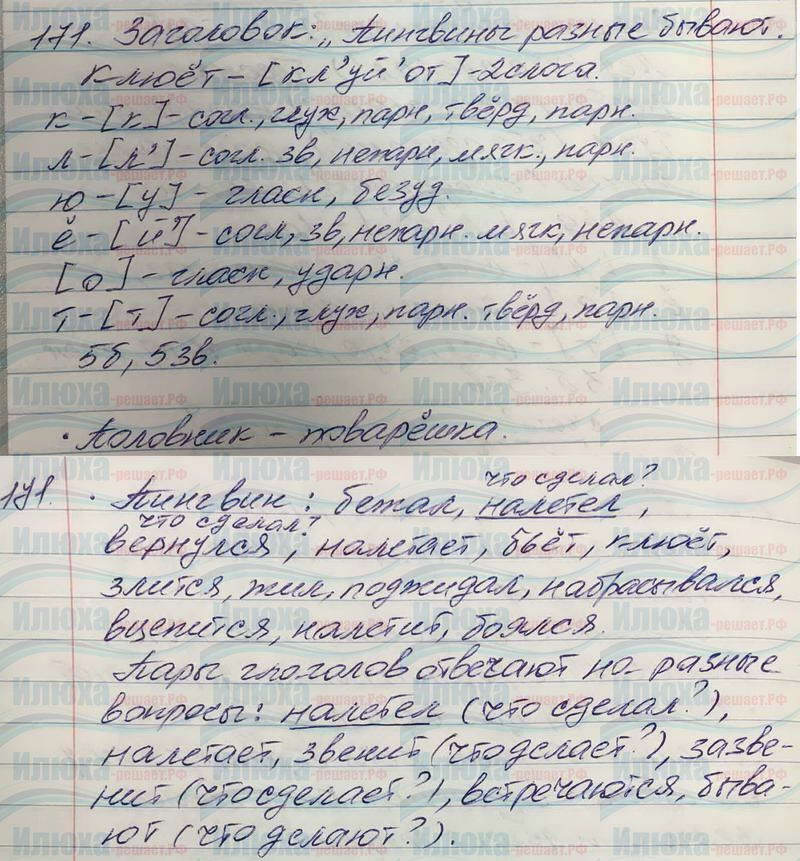 171. Заголовок: „Пингвины разные бывают.
клюёт – [кл'уй'от] – 2 слога.
к – [к] – согл., глух, парн, твёрд, парн.
л – [л'] – согл. зв, непарн, мягк., парн.
ю – [у] – гласн, безуд.
ё – [й'] – согл, зв, непарн. мягк, непарн.
[о] – гласн, ударн.
т – [т] – согл., глух, парн. твёрд, парн.
5б, 5зв.
• Половник – поварёшка.
что сделал?
171. • Пингвин: бежал, налетел,
что сделал?
вернулся; налетает, бьёт, клюёт,
злится, жил, поджидал, набрасывался,
вцепится, налетит, боялся.
Пары глоголов отвечают на разные
вопросы: налетел (что сделал?),
налетает, звенит (что делает?), зазве-
нит (что сделает?), встречаются, быва-
ют (что делают?).
Илюха-решает.рф